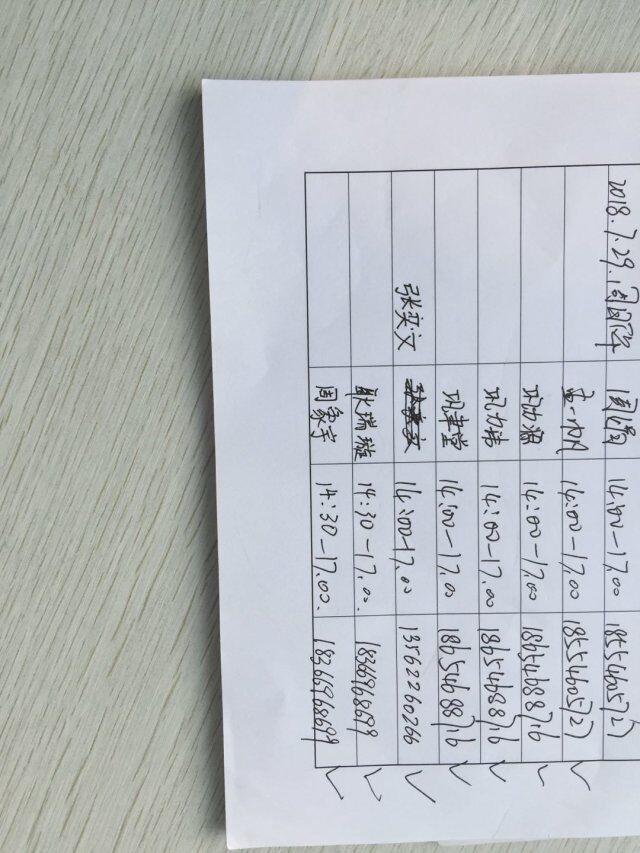 2018.7.29.
14:00-17.00 18554605727
14:00-17.00 18554605727
14:00-17.00 18654688716
巩力 14:00-17.00 18654688716
14:00-17.00 18654688716
张奕文 14:00-17.00 13562260266
耿瑞璇 14:30-17.00. 18366968699
周象宇 14:30-17.00. 18366968699